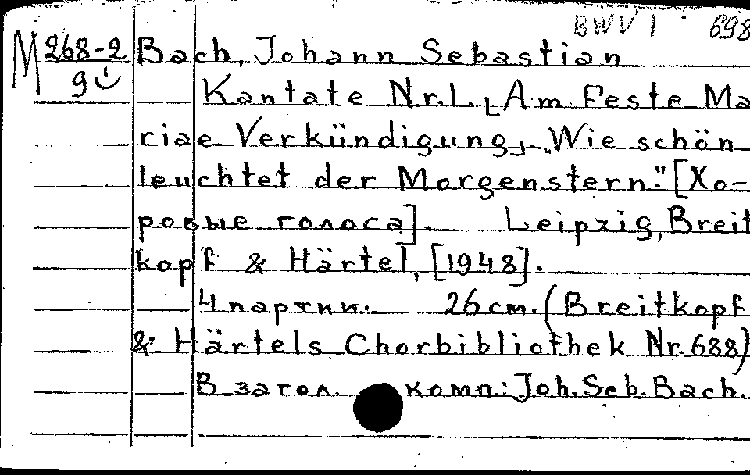 BWV 1 698
M 268-2 Bach, Johann Sebastian
9
Kantate Nr.1. [Am Feste Ma
riae Verkündigung]. „Wie schön
leuchtet der Morgenstern." [Хо-
ровые голоса]. Leipzig, Breit
kopf & Härtel, [1948].
4 партии. 26 см. (Breitkopf
& Härtels Chorbibliothek Nr. 688)
В загол. комп.: Joh. Seb. Bach.